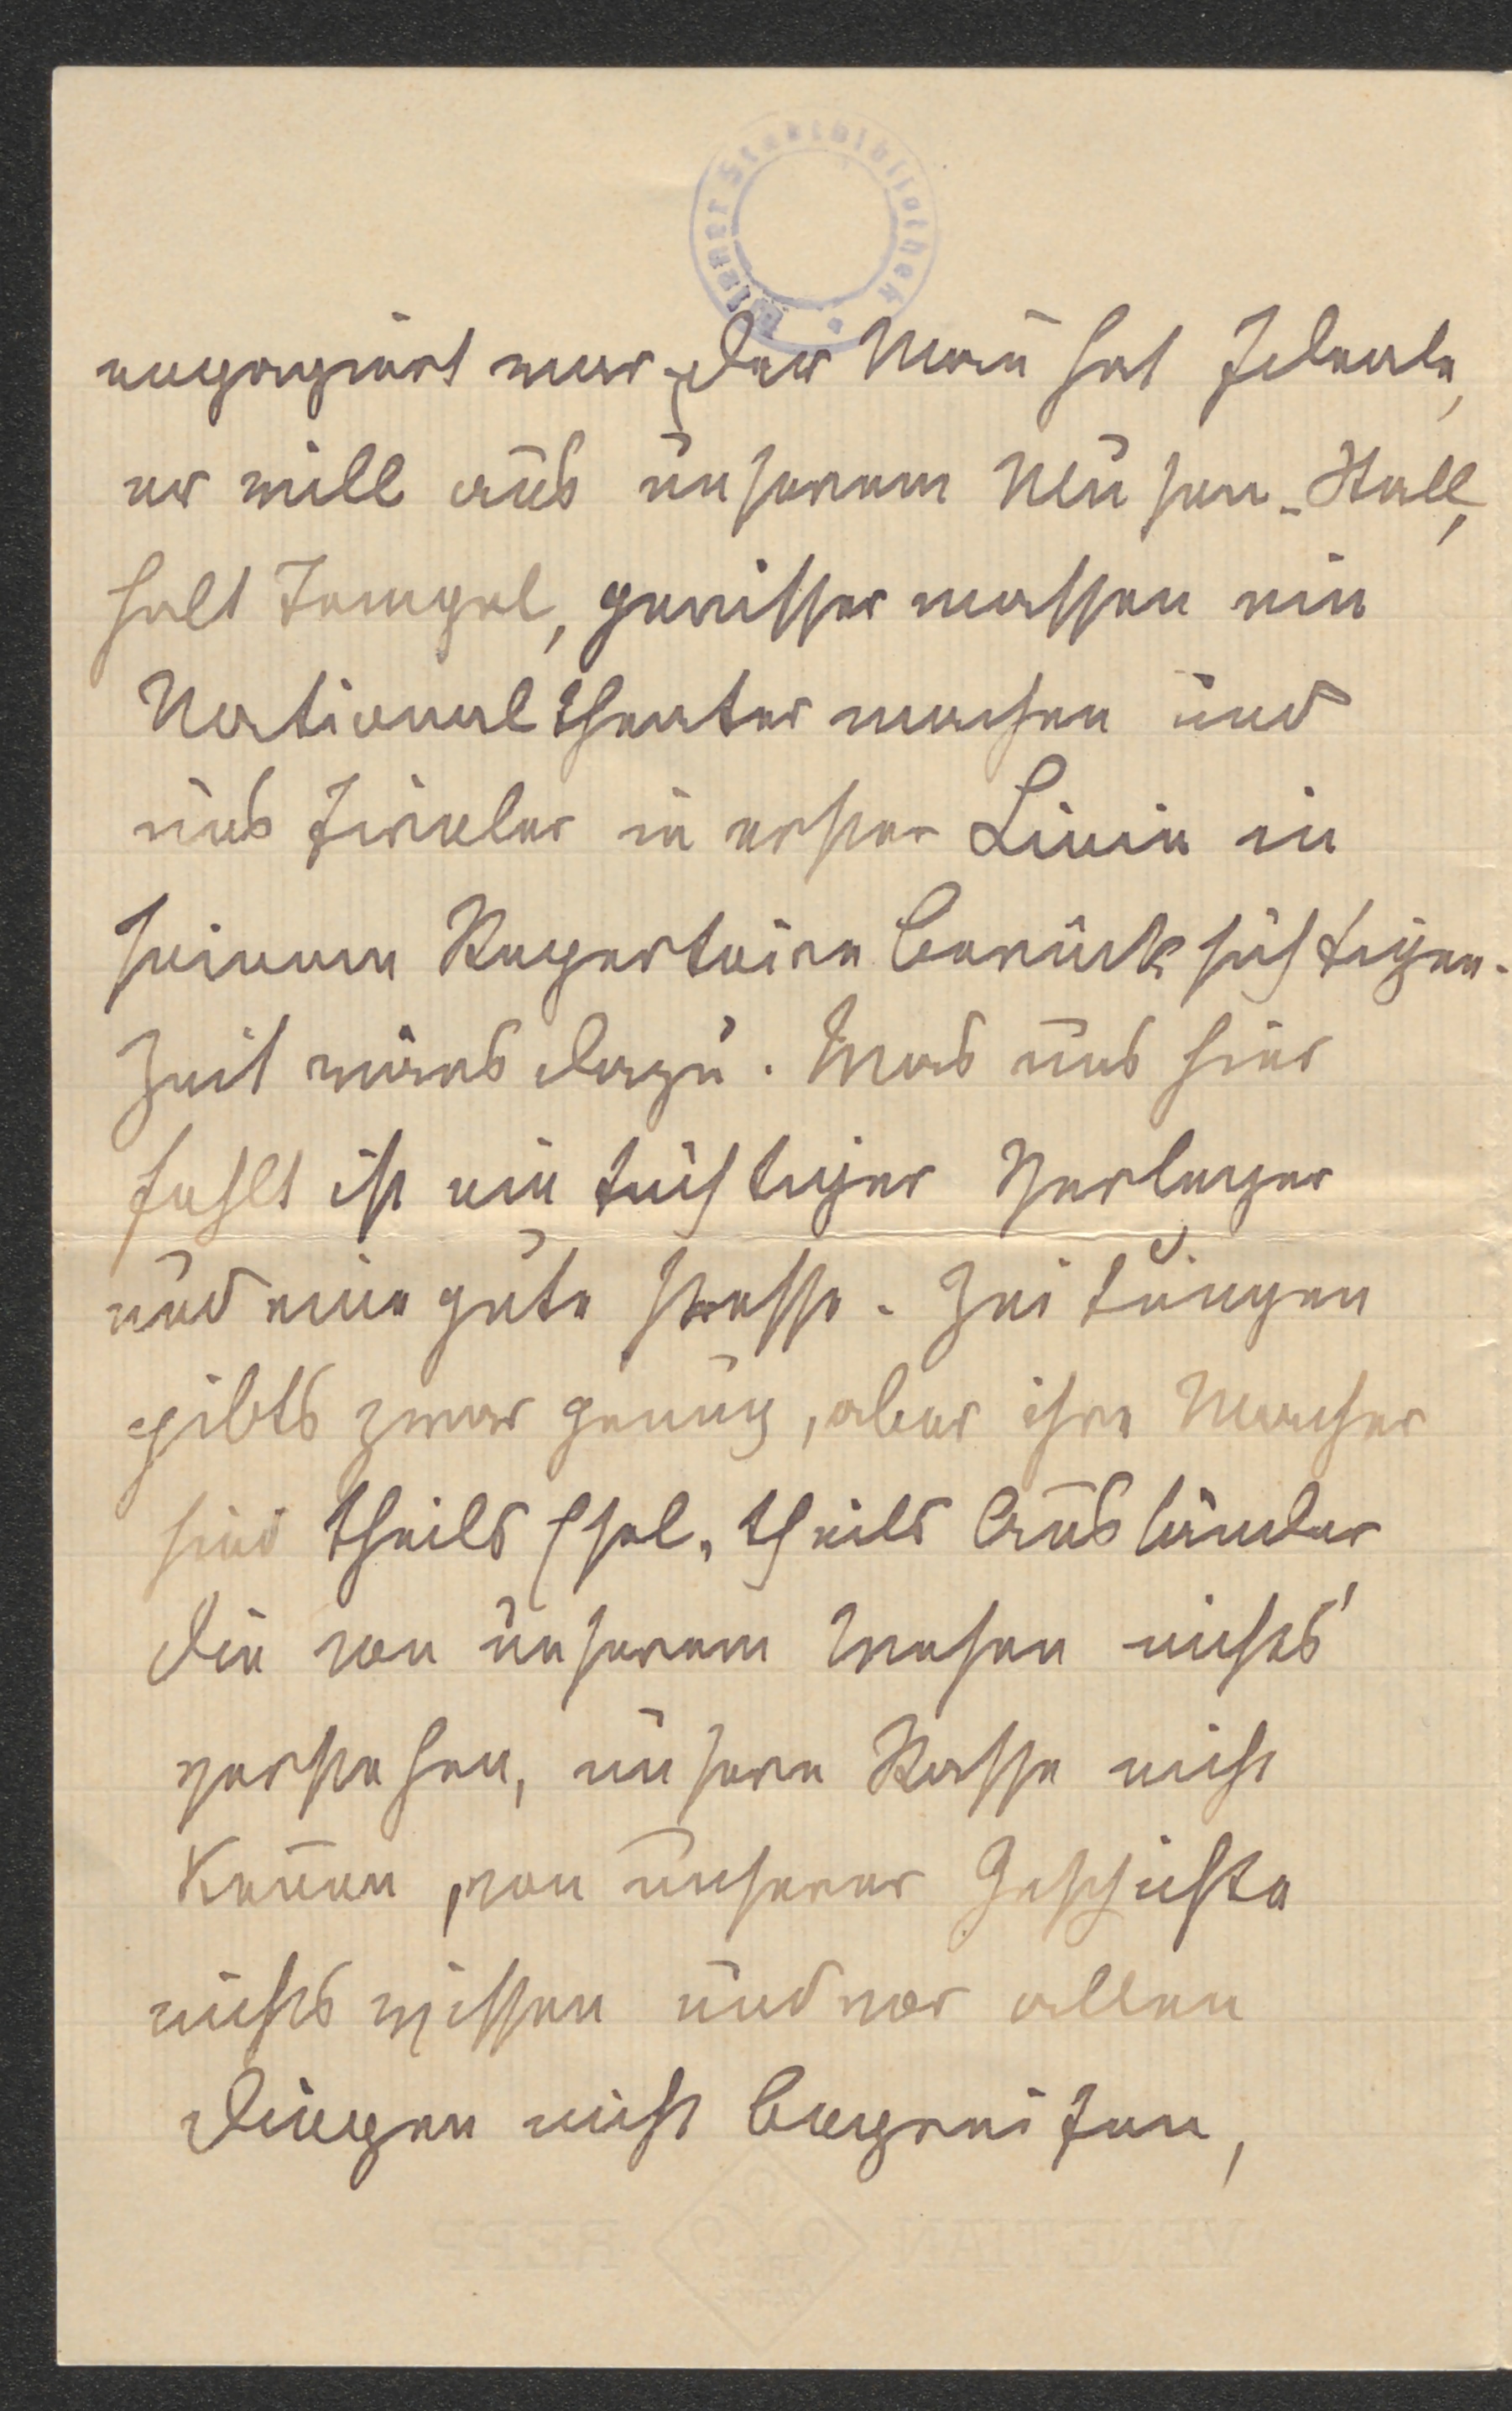 Wiener Stadtbibliothek
engagiert war. Der Man̄ hat Ideale,
er will aus unserem Musen-Stall,
halt Tempel, gewisser massen ein
Nationaltheater machen und
uns Tiroler in erster Linie in
seinem Repertoire berücksichtigen.
Zeit wärs dazu. Was uns hier
fehlt ist ein tüchtiger Verleger
und eine gute Presse. Zeitungen
gibts zwar genug, aber ihre Macher
sind theils Esel, theils Ausländer
die von unserem Wesen nichts
verstehen, unsere Rasse nicht
ken̄en, von unserer Geschichte
nichts wissen und vor allen
Dingen nicht begreifen,